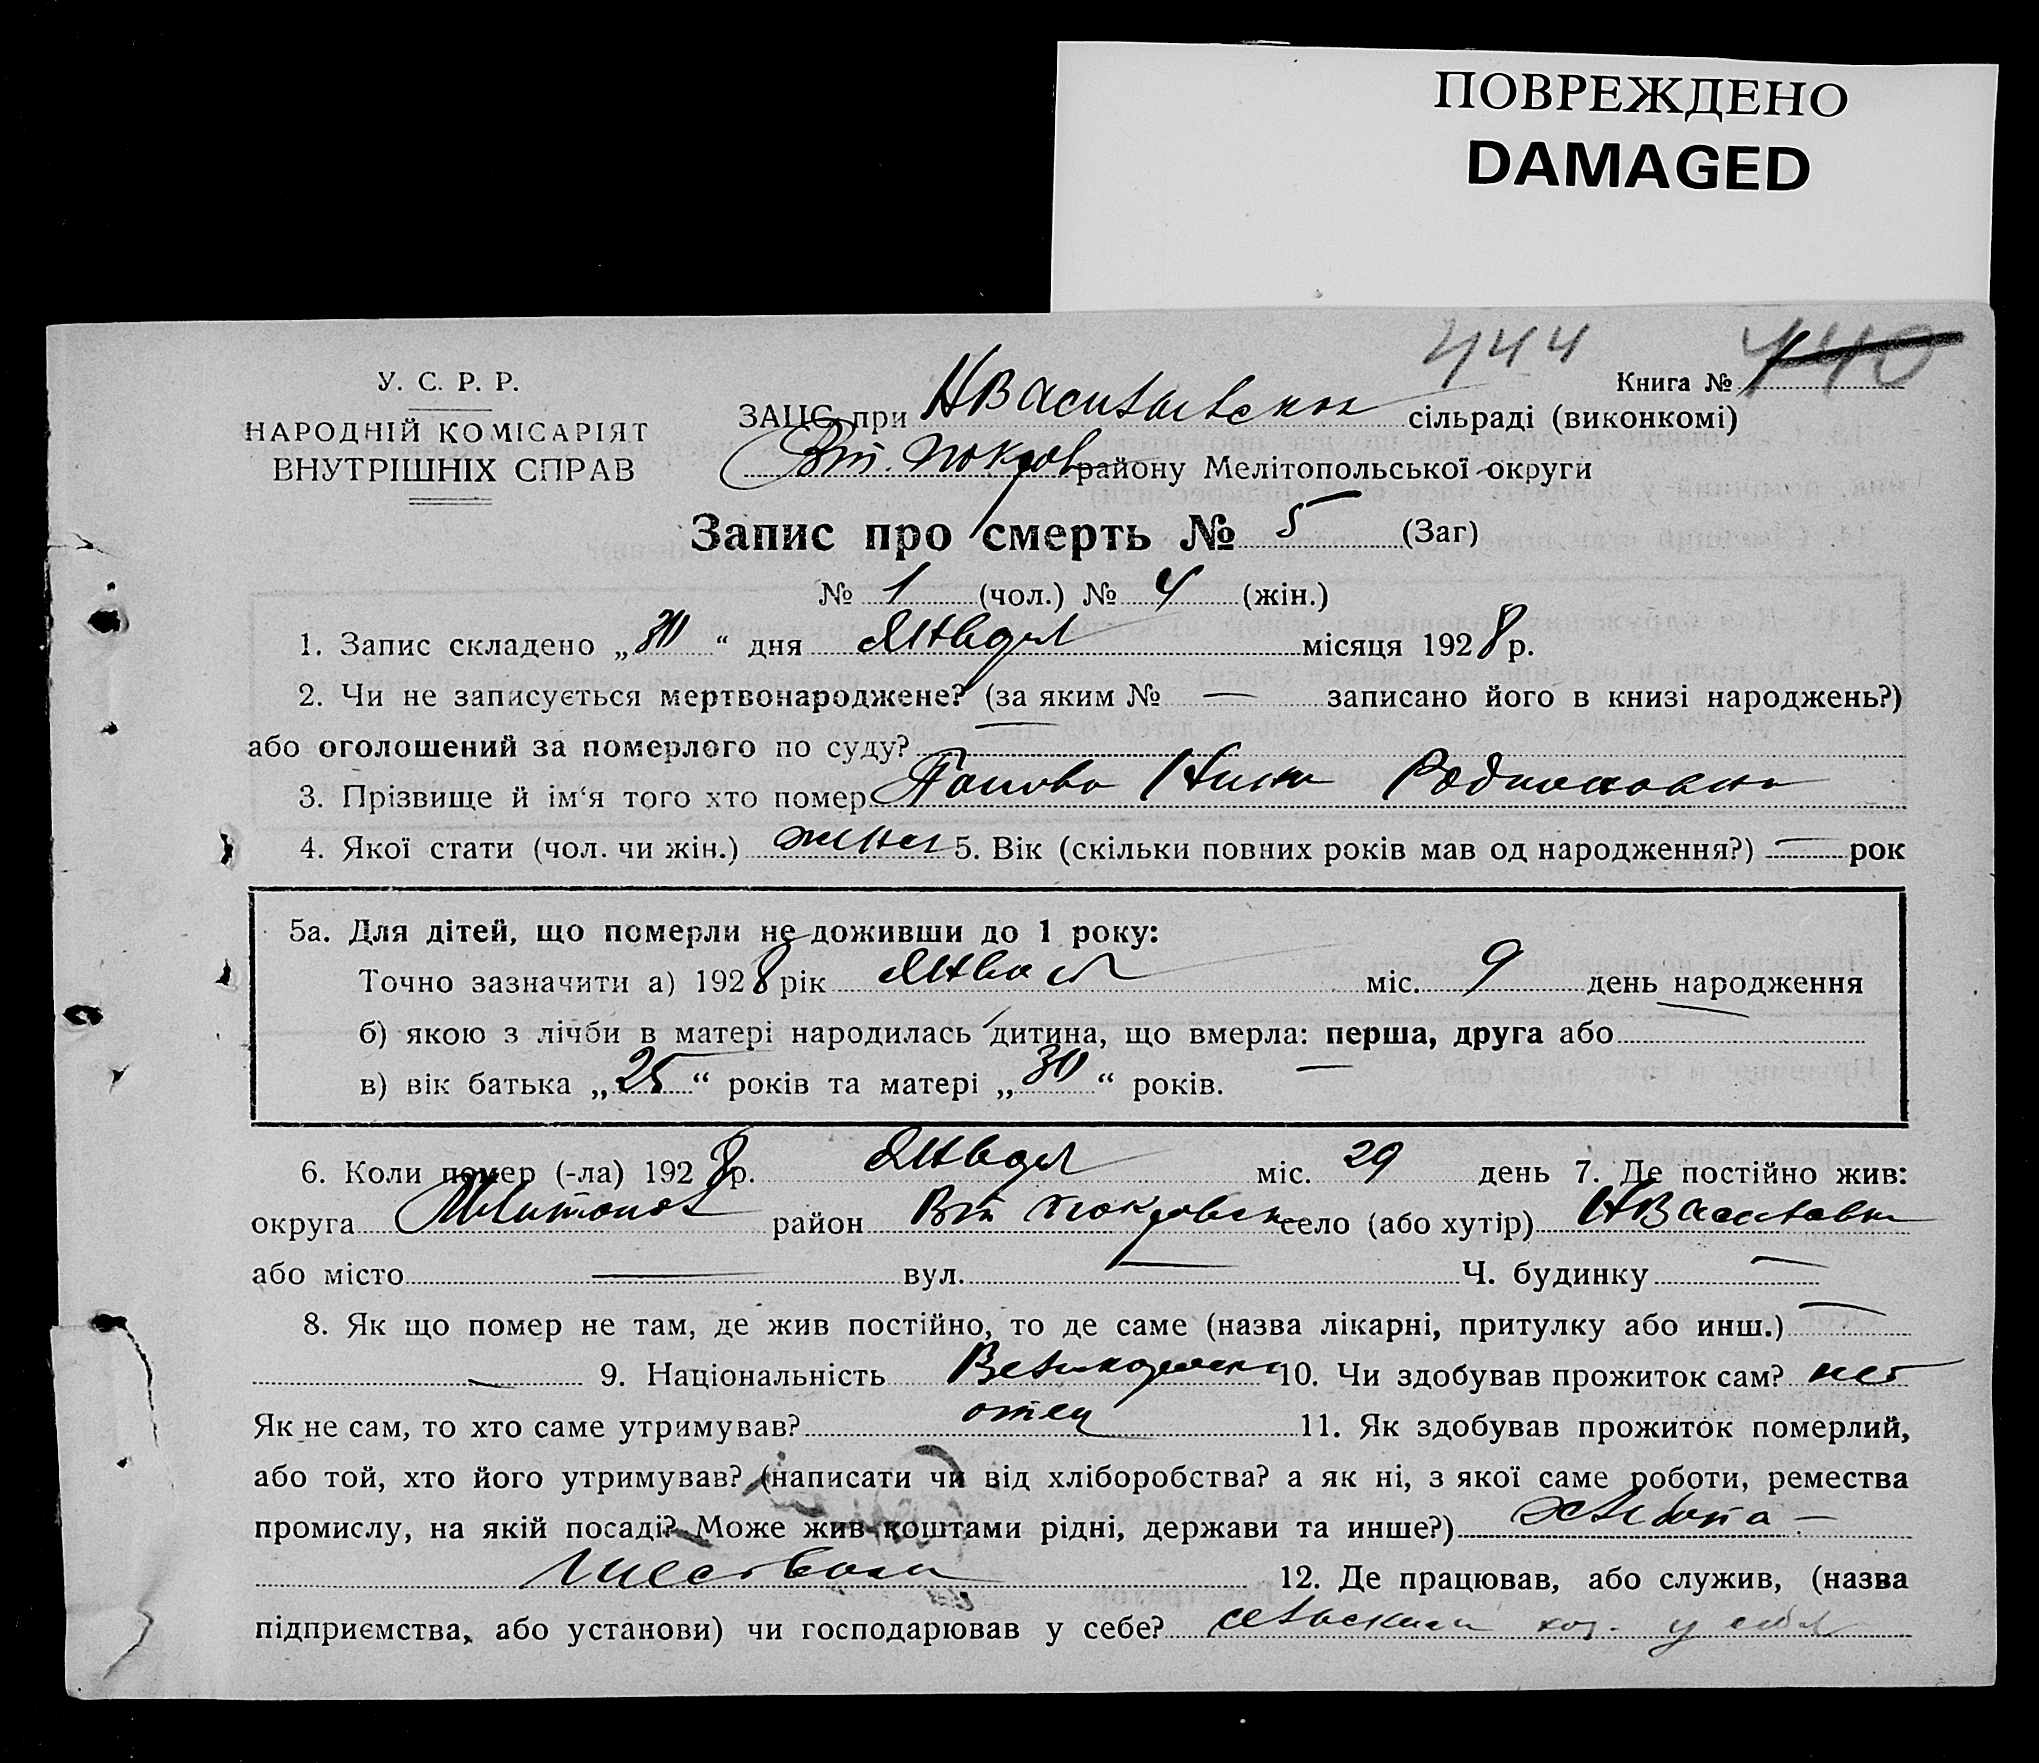 ПОВРЕЖДЕНО
DAMAGED
444
У. С. Р. Р.
Книга № 440
НАРОДНІЙ КОМІСАРІЯТ
ВНУТРІШНІХ СПРАВ
ЗАЦС при НВасильевском сільраді (виконкомі)
Вт. Покров району Мелітопольської округи
Запис про смерть № 5 (Заг)
№ 1 (чол.) № 4 (жін.)
1. Запис складено „ 30 “ дня Января місяця 1928 р.
2. Чи не записується мертвонароджене? (за яким № — записано його в книзі народжень?)
або оголошений за померлого по суду? —
3. Прізвище й ім‘я того хто помер Нина Родионовна
4. Якої стати (чол. чи жін.) 5. Вік (скільки повних років мав од народження?) — рок
5а. Для дітей, що померли не доживши до 1 року:
Точно зазначити а) 1928 рік Января міс. 9 день народження
б) якою з лічби в матері народилась дитина, що вмерла: перша, друга або —
в) вік батька „ 25 “ років та матері „ 30 “ років.
6. Коли помер (-ла) 1928 р. Января міс. 29 день 7. Де постійно жив:
округа Мелитопол район Вт Покровск село (або хутір) НВасильевка
або місто — вул. — Ч. будинку —
8. Як що помер не там, де жив постійно, то де саме (назва лікарні, притулку або инш.) —
— 9. Національність Великоросска 10. Чи здобував прожиток сам? нет
Як не сам, то хто саме утримував? отец 11. Як здобував прожиток померлий,
або той, хто його утримував? (написати чи від хліборобства? а як ні, з якої саме роботи, ремества
промислу, на якій посаді? Може жив коштами рідні, держави та инше?)
12. Де працював, або служив, (назва
підприємства, або установи) чи господарював у себе? сельским хоз. у себя